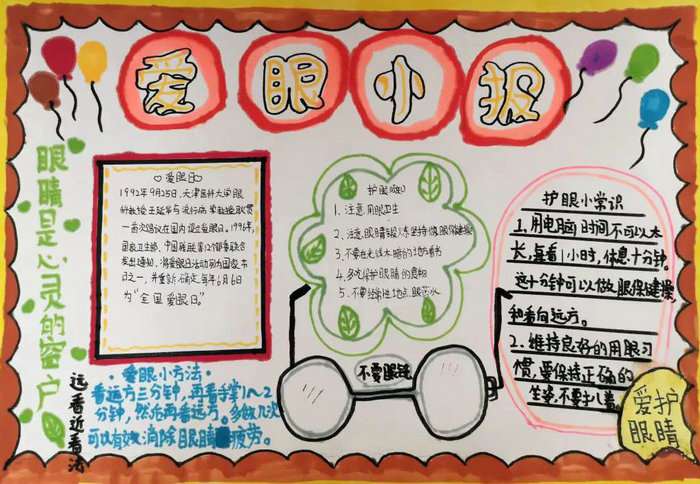 爱眼小报
眼睛是心灵的窗户
♡爱眼日♡
1992年9月25日,天津医科大学眼
科教授王延华与流行病学教授耿贯
一首次倡议在国内设立爱眼日。1996年,
国家卫生部、中国残联等12个部委联合
发出通知,将爱眼日活动列为国家节
日之一,并重新确定每年6月6日
为“全国爱眼日。”
护眼
1、注意用眼卫生
2、注意眼睛锻炼坚持做眼保健操
3、不要在光线太暗的地方看书
4、多吃保护眼睛的食物
5、不要经常性地点眼药水
护眼小常识
1、用电脑时间不可以太
长,每看1小时,休息十分钟。
这十分钟可以做眼保健操,
和看向远方。
2、维持良好的用眼习
惯,要保持正确的
坐姿,不要
不要眼镜
·爱眼小方法·
看远方三分钟,再看手掌1~2
分钟,然后再看远方。多做几次
可以有效消除眼睛疲劳。
远看近看法
爱护
眼睛